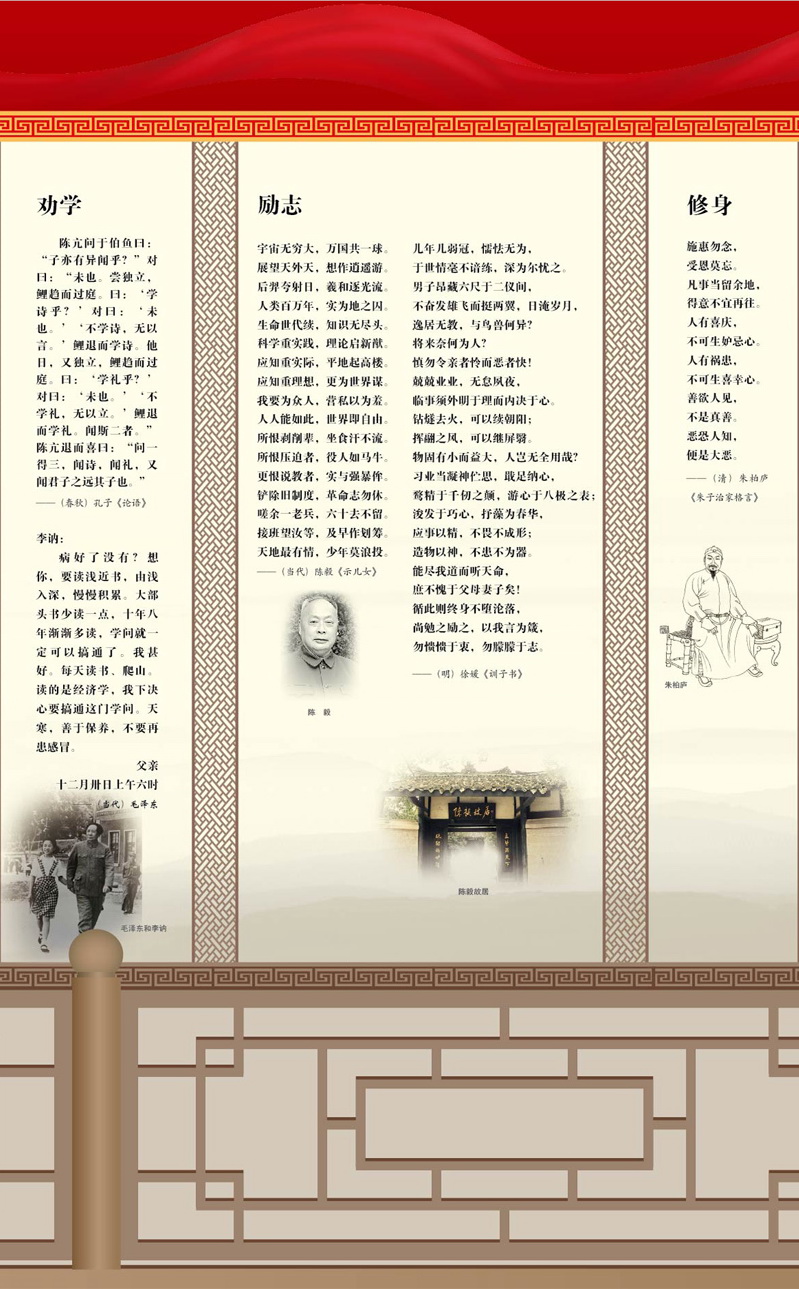 劝学
陈亢问于伯鱼曰：
“子亦有异闻乎？”对
曰：“未也。尝独立，
鲤趋而过庭。曰：‘学
诗乎？’对曰：‘未
也。’‘不学诗，无以
言。’鲤退而学诗。他
日，又独立，鲤趋而过
庭。曰：‘学礼乎？’
对曰：‘未也。’‘不
学礼，无以立。’鲤退
而学礼。闻斯二者。”
陈亢退而喜曰：“问一
得三，闻诗，闻礼，又
闻君子之远其子也。”
——（春秋）孔子《论语》
李讷：
病好了没有？想
你，要读浅近书，由浅
入深，慢慢积累。大部
头书少读一点，十年八
年渐渐多读，学问就一
定可以搞通了。我甚
好。每天读书、爬山。
读的是经济学，我下决
心要搞通这门学问。天
寒，善于保养，不要再
患感冒。
父亲
十二月卅日上午六时
（当代）毛泽东
毛泽东和李讷
励志
宇宙无穷大，万国共一球。
展望天外天，想作逍遥游。
后羿夸射日，羲和逐光流。
人类百万年，实为地之囚。
生命世代续，知识无尽头。
科学重实践，理论启新猷。
应知重实际，平地起高楼。
应知重理想，更为世界谋。
我要为众人，营私以为羞。
人人能如此，世界即自由。
所恨剥削辈，坐食汗不流。
所恨压迫者，役人如马牛。
更恨说教者，实与强暴侔。
铲除旧制度，革命志勿休。
嗟余一老兵，六十去不留。
接班望汝等，及早作划筹。
天地最有情，少年莫浪投。
——（当代）陈毅《示儿女》
陈 毅
儿年几弱冠，懦怯无为，
于世情毫不谙练，深为尔忧之。
男子昂藏六尺于二仪间，
不奋发雄飞而挺两翼，日淹岁月，
逸居无教，与鸟兽何异？
将来奈何为人？
慎勿令亲者怜而恶者快！
兢兢业业，无怠夙夜，
临事须外明于理而内决于心。
钻燧去火，可以续朝阳；
挥翮之风，可以继屏翳。
物固有小而益大，人岂无全用哉？
习业当凝神伫思，戢足纳心，
骛精于千仞之颠，游心于八极之表；
浚发于巧心，抒藻为春华，
应事以精，不畏不成形；
造物以神，不患不为器。
能尽我道而听天命，
庶不愧于父母妻子矣！
循此则终身不堕沦落，
尚勉之励之，以我言为箴，
勿愦愦于衷，勿朦朦于志。
——（明）徐媛《训子书》
陈毅故居
陈毅故居
修身
施惠勿念，
受恩莫忘。
凡事当留余地，
得意不宜再往。
人有喜庆，
不可生妒忌心。
人有祸患，
不可生喜幸心。
善欲人见，
不是真善。
恶恐人知，
便是大恶。
——（清）朱柏庐
《朱子治家格言》
朱柏庐